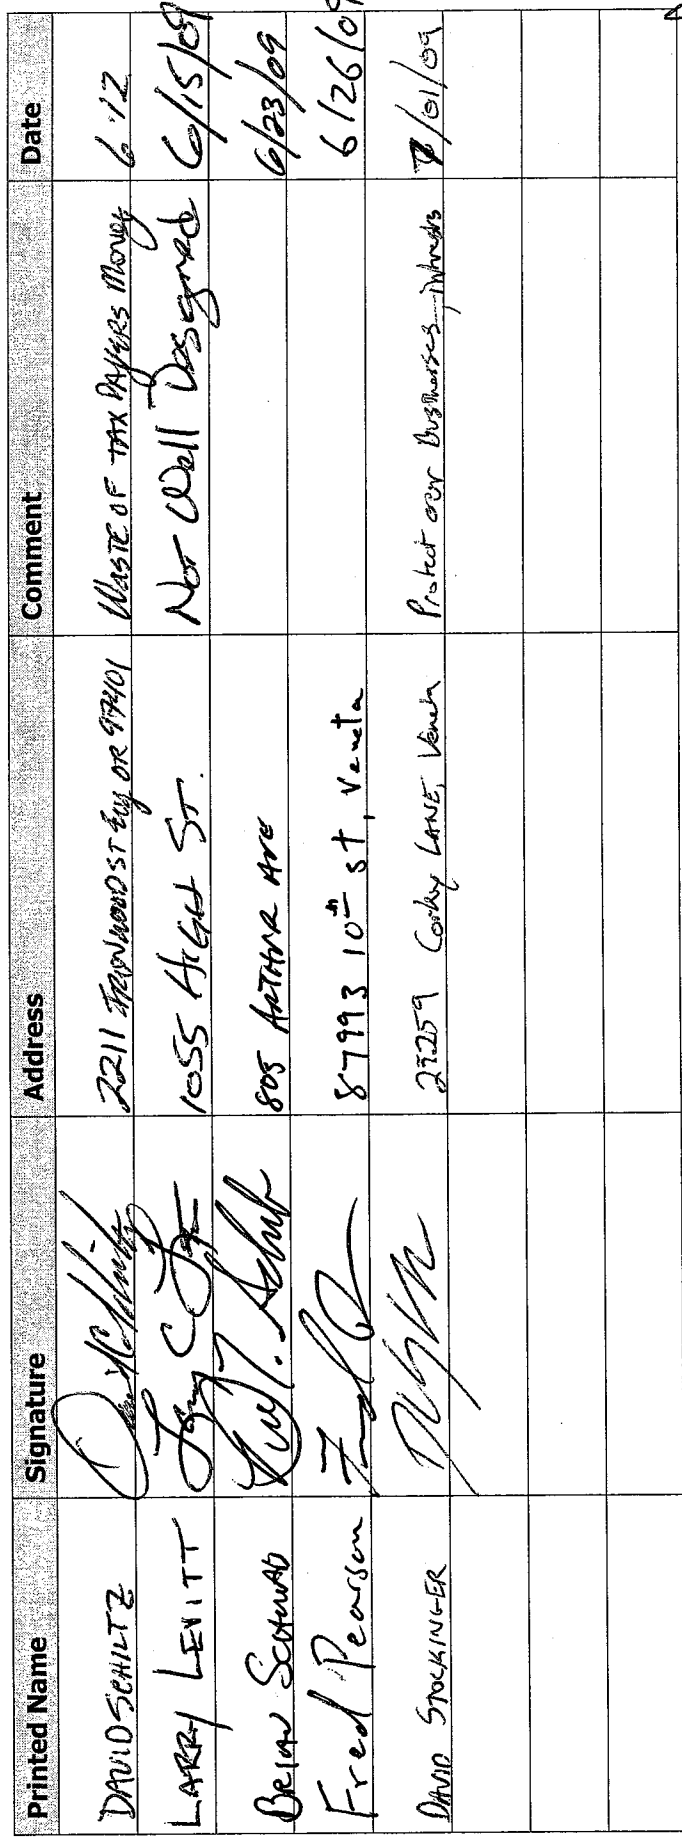 Printed Name Signature Address Comment Date
DAVID SCHILTZ 2211 IRONWOOD ST Eug OR 97401 WASTE OF TAX PAYERS Money 6-12
LARRY LEVITT 1055 HIGH ST. Not Well Designed 6/15/09
BRIAN 805 ARTHUR AVE 6/23/09
Fred Pearson 87993 10th st, Veneta 6/26/09
DAVID STOCKINGER LANE, Veneta Protect our Businesses interests 7/01/09